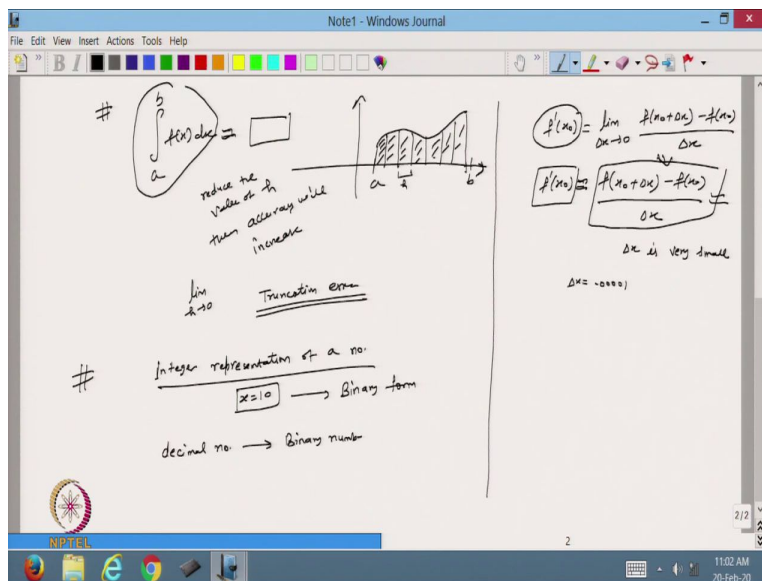 Note1 - Windows Journal
File Edit View Insert Actions Tools Help
B I
# ∫_a^b f(x) dx =
a h b
reduce the
value of h
then accuracy will
increase
lim h→0 Truncation error
# integer representation of a no.
x=10 → Binary form
decimal no. → Binary number
f'(x₀) = lim Δx→0 (f(x₀+Δx) - f(x₀)) / Δx
f'(x₀) = (f(x₀+Δx) - f(x₀)) / Δx =
Δx is very small
Δx = .00001
NPTEL
2
2/2
11:02 AM
20-Feb-20